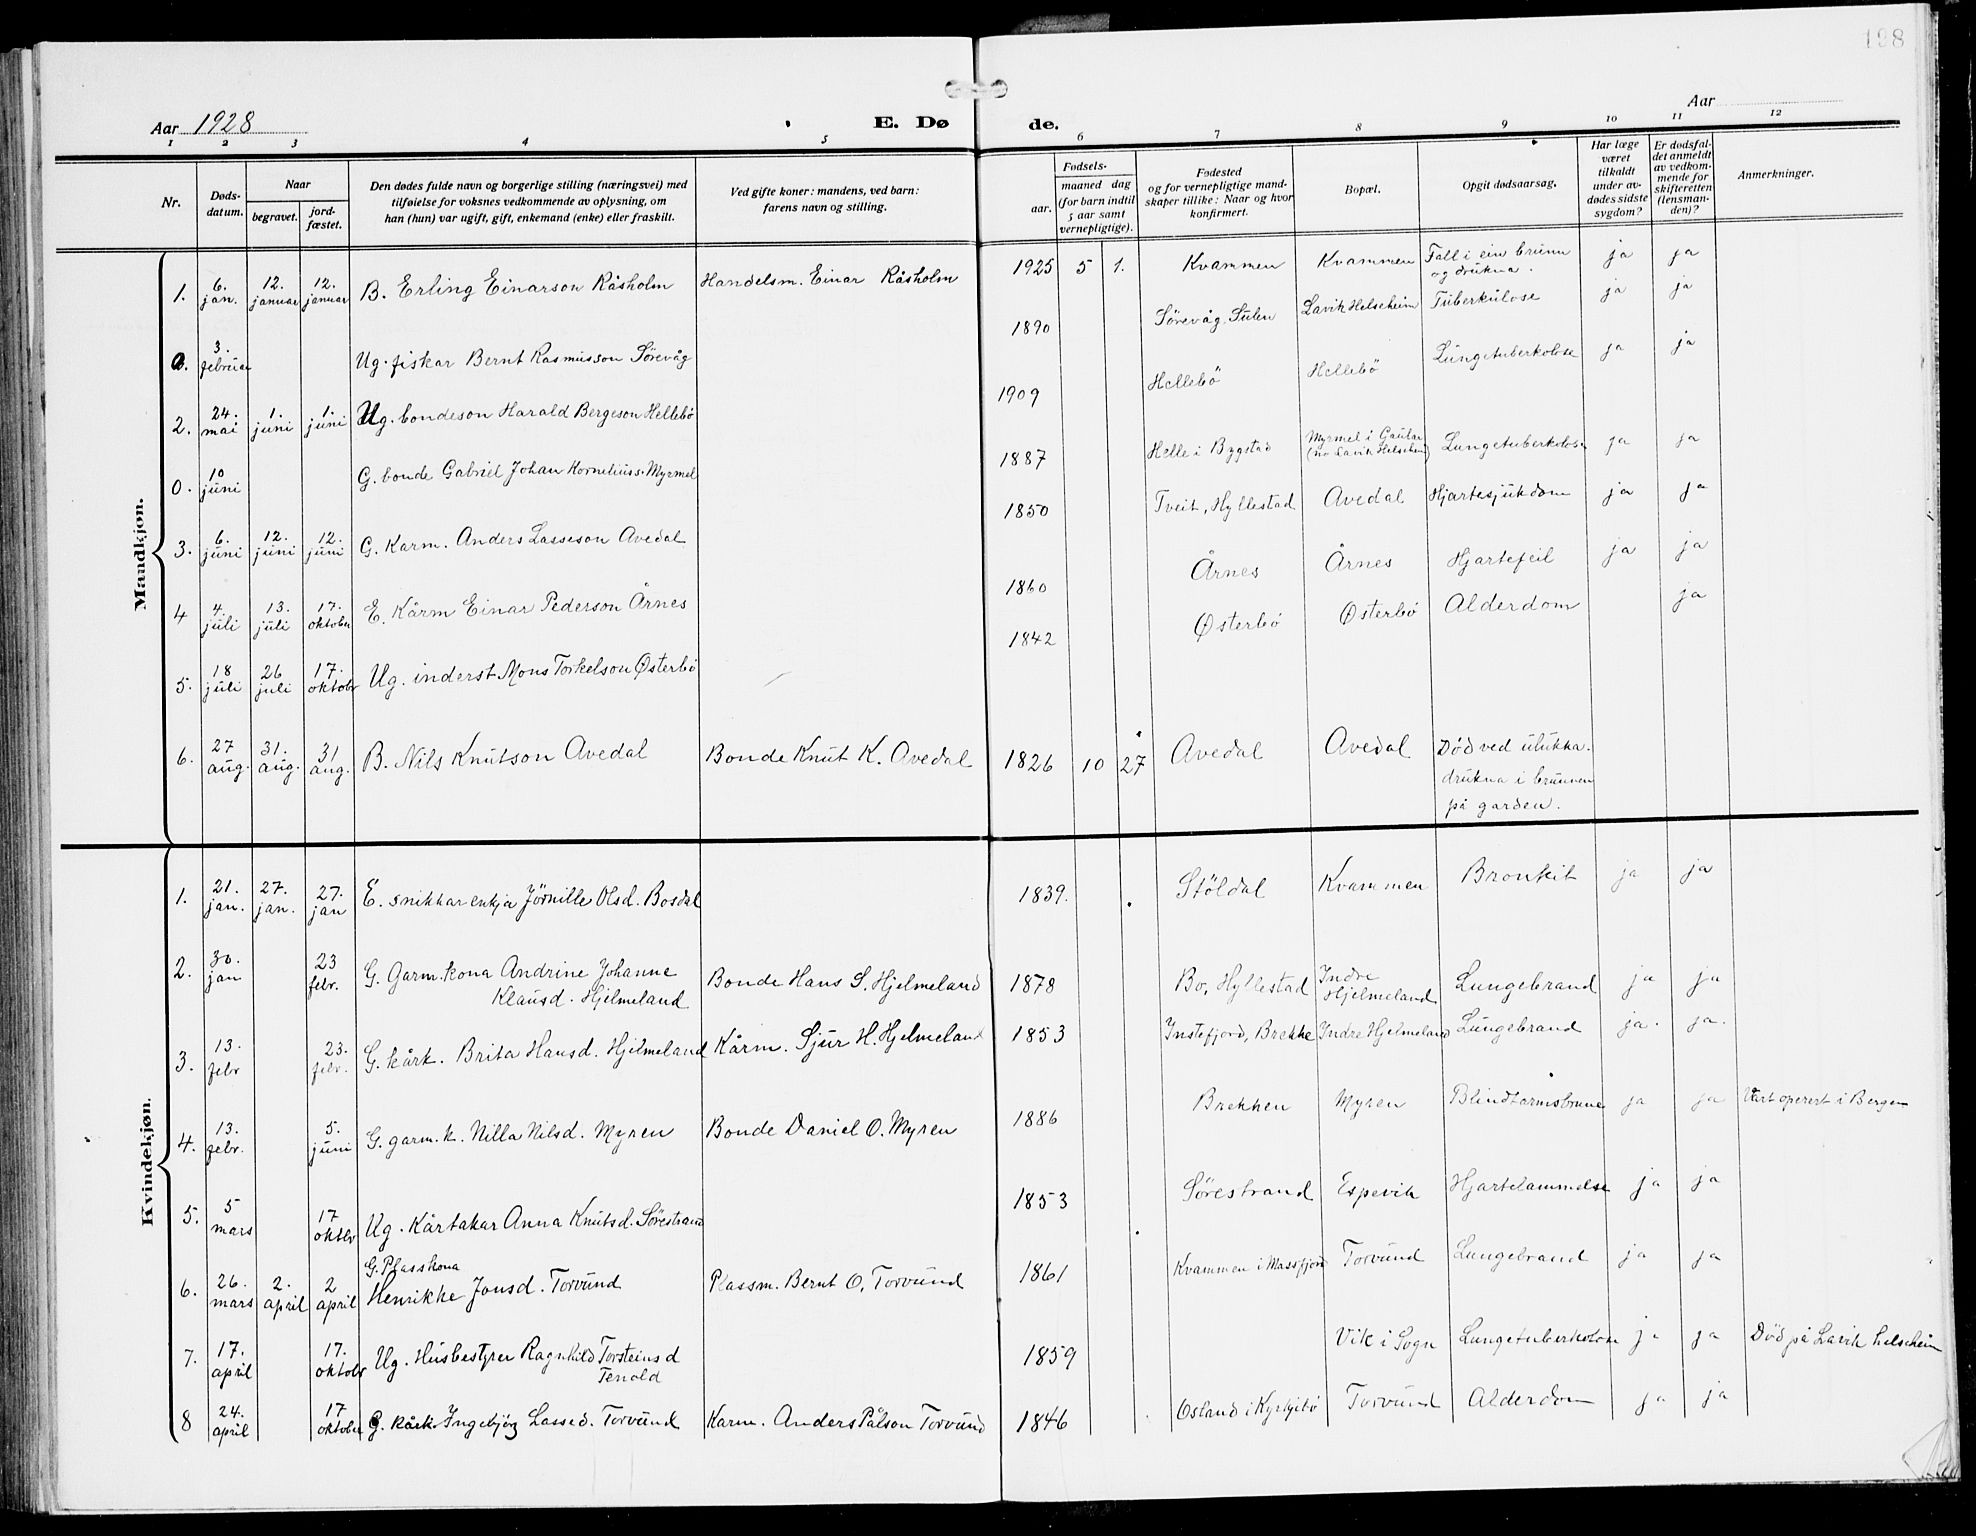 198
Aar 1928
E. Dø de.
Aar
1 2 3 4 5 6 7 8 9 10 11 12
Nr.
Døds-
datum.
Naar
begravet.
jord-
fæstet.
Den dødes fulde navn og borgerlige stilling (næringsvei) med
tilføielse for voksnes vedkommende av oplysning, om
han (hun) var ugift, gift, enkemand (enke) eller fraskilt.
Ved gifte koner: mandens, ved barn:
farens navn og stilling.
Fødsels-
aar.
maaned dag
(for barn indtil
5 aar samt
vernepligtige).
Fødested
og for vernepligtige mand-
skaper tillike: Naar og hvor
konfirmert.
Bopæl.
Opgit dødsaarsag.
Har læge
været
tilkaldt
under av-
dødes sidste
sygdom?
Er dødsfal-
det anmeldt
av vedkom-
mende for
skifteretten
(lensman-
den)?
Anmerkninger.
Mandkjøn.
1. 6. jan. 12. januar 12. januar B. Erling Einarson Råsholm Handelsm. Einar Råsholm 1925 5 1. Kvammen Kvammen Fall i ein brunn
og drukna. ja ja
0. 3. februar Ug. fiskar Bernt Rasmusson Sörevåg 1890 Sörevåg Sulen Lavik Helseheim Tuberkulose ja ja
2. 24. mai 1. juni 1. juni Ug. bondeson Harald Bergeson Hellebö 1909 Hellebö Hellebö Lungetuberkolose ja ja
0. 10 juni G. bonde Gabriel Johan Korneliuss. Myrmel 1887 Helle i Bygstad Myrmel i Gaular
(no Lavik Helseheim) Lungetuberkolose ja ja
3. 6. juni 12. juni 12. juni G. Karm. Anders Lasseson Avedal 1850 Tveit, Hyllestad Avedal Hjartesjukdom ja ja
4 4. juli 13. juli 17. oktober E. Kårm Einar Pederson Årnes 1860 Årnes Årnes Hjartefeil ja ja
5. 18 juli 26 juli 17. oktobr Ug. inderst Mons Torkelson Østerbö 1842 Østerbö Østerbö Alderdom ja
6. 27 aug. 31. aug. 31 aug. B. Nils Knutson Avedal Bonde Knut K. Avedal 1826 10 27 Avedal Avedal Död ved ulukka.
drukna i brunnen
på garden.
Kvindekjøn.
1. 21. jan. 27. jan. 27. jan E. snikkarenkja Jörnille Olsd. Bosdal 1839. Stöldal Kvammen Bronkit ja ja
2. 30. jan 23 febr. G. Garm.kona Andrine Johanne
Klausd. Hjelmeland Bonde Hans S. Hjelmeland 1878 Bo, Hyllestad Indre
Hjelmeland Lungebrand ja ja
3. 13. febr 23. febr. G. kårk. Brita Hansd. Hjelmeland Kårm. Sjur H. Hjelmeland 1853 Instefjord, Brekke Indre Hjelmeland Lungebrand ja. ja.
4. 13. febr. 5. juni G. garm.k. Nilla Nilsd. Myren Bonde Daniel O. Myren 1886 Brekken Myren Blindtarmsbrune ja ja Vart operert i Bergen
5. 5 mars 17 oktbr Ug. Kårtakar Anna Knutsd. Sörestrand 1853 Sörestrand Espevik Hjartelammelse ja ja
6. 26. mars 2. april 2 april G. Plasskona
Henrikke Jonsd. Torvund Plassm. Bernt O. Torvund 1861 Kvammen i Massfjord Torvund Lungebrand ja ja
7. 17. april 17. oktobr Ug. Husbestyrer Ragnhild Torsteinsd
Tenold 1859 Vik i Sogn Lungetuberkolose ja ja Död på Lavik helseheim
8 24. april 17 oktober G. kårk. Ingebjörg Lassed. Torvund Karm. Anders Pålson Torvund 1846 Osland i Kyrkjebö Torvund Alderdom ja ja